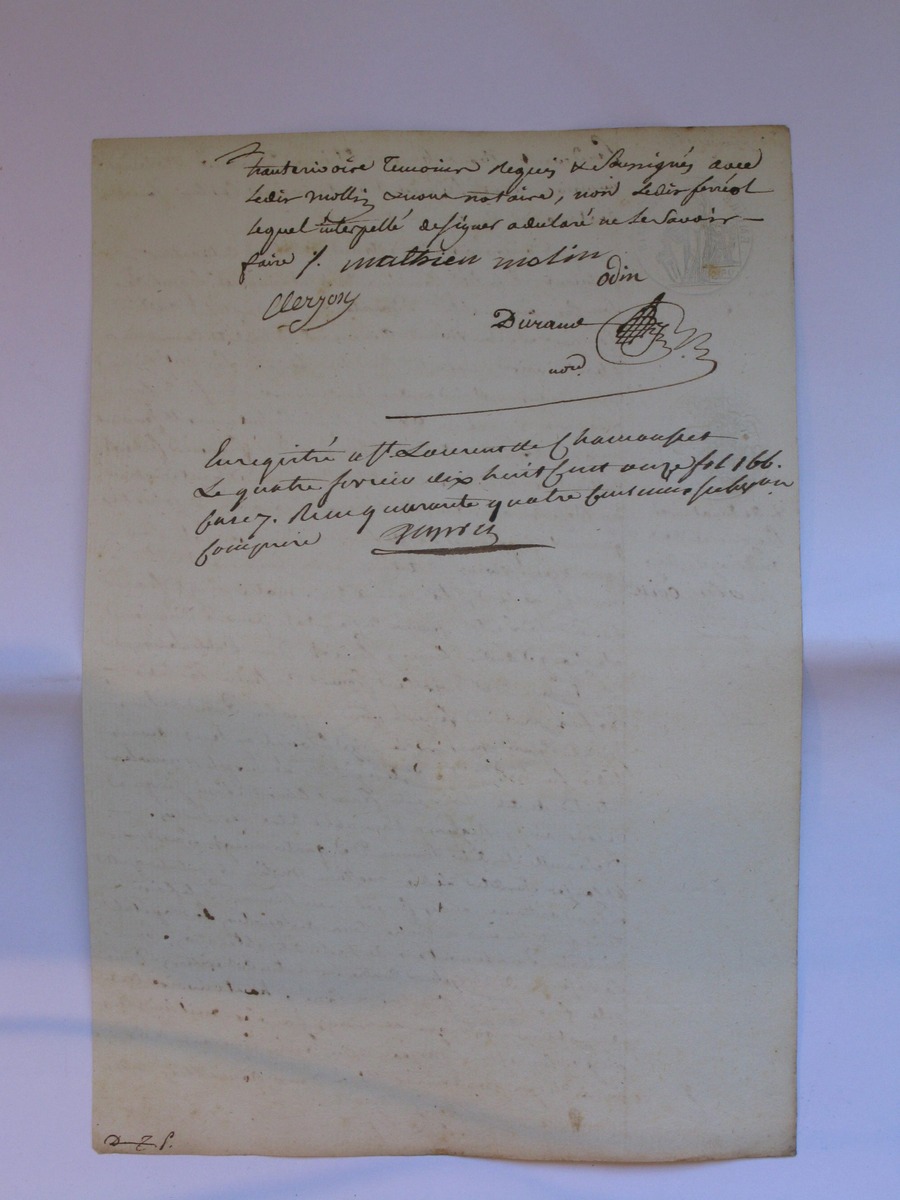 hauterivoire Temoins Requis & Soussignés avec
Ledit Mollin & nous notaire, non Ledit ferréol
Lequel interpellé de signer a déclaré ne Le Savoir
faire /. mathieu molin
odin
Clerjon
Durand
nore
Enregistré a St. Laurent de Chamousset
Le quatre fevrier dix huit Cent onze fol 166.
Case 7. Recu quarante quatre Centimes subvon
Comprise
D Z P.